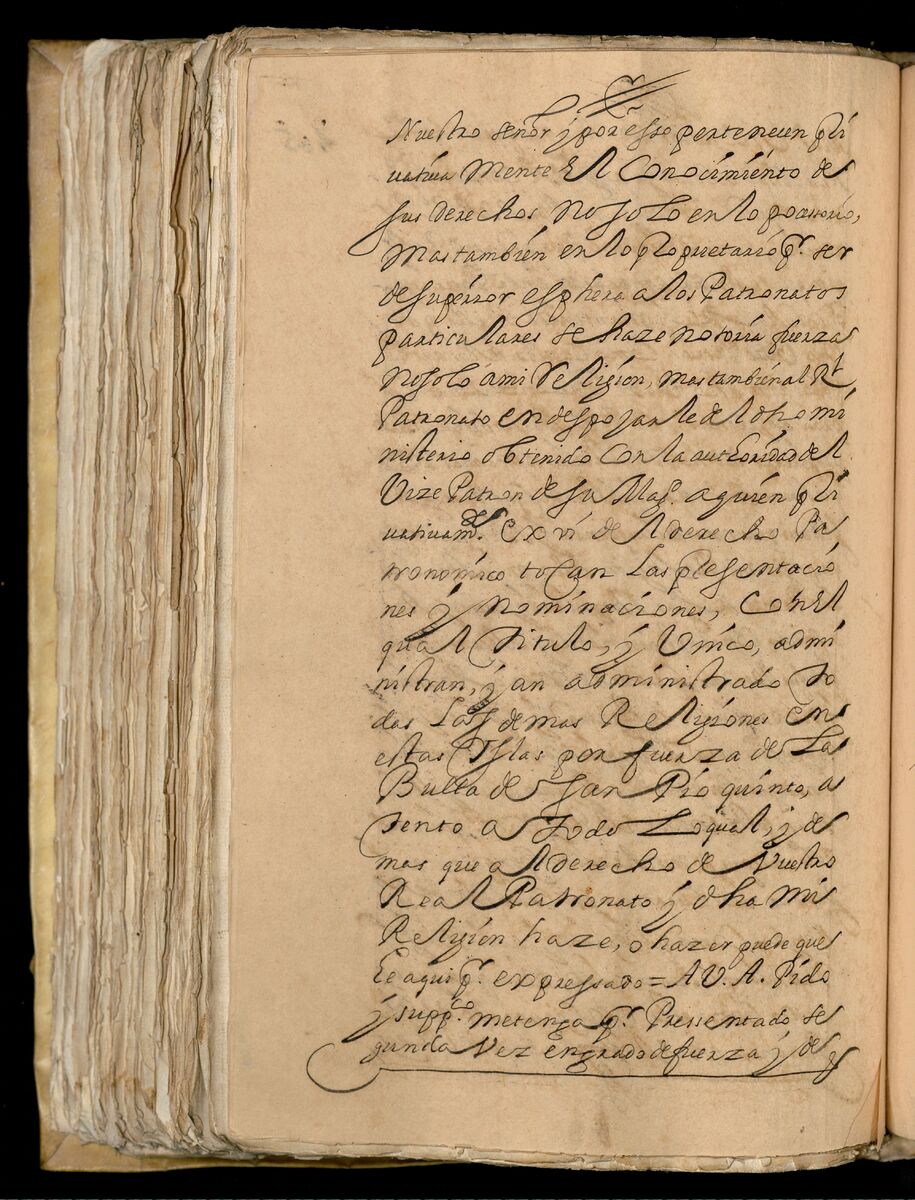 Nuestro señor y por esso pertenecen pri
vativa Mente El Conocimiento de
sus derechos No solo en lo possorio,
Mas tambien en lo propietario pr. ser
de superior esphera a los Patronatos
particulares se haze notoria fuerza
no solo a mi Religion, mas tambien al Rl
Patronato en despojarle del dho mi
nisterio obtenido Con la authoridad del
Vize Patron de su Magd. a quien pri
vativamte. Ex vi del derecho Pa
tronomico tocan Las presentacio
nes y nominaciones, Con El
qual Titulo, y Unico, admi
nistran, y an administrado To
das Las demas Religiones en
estas Yslas por fuerza de La
Bulla de San Pio quinto, a
tento a Todo Lo qual, y de
mas que al derecho de Vuestro
Real Patronato y dha mi
Religion haze, o hazer puede que
Ee aqui pr. expressado = A V. A. Pido
y suppco. me tenga pr. Pressentado se
gunda Vez en grado de fuerza y de